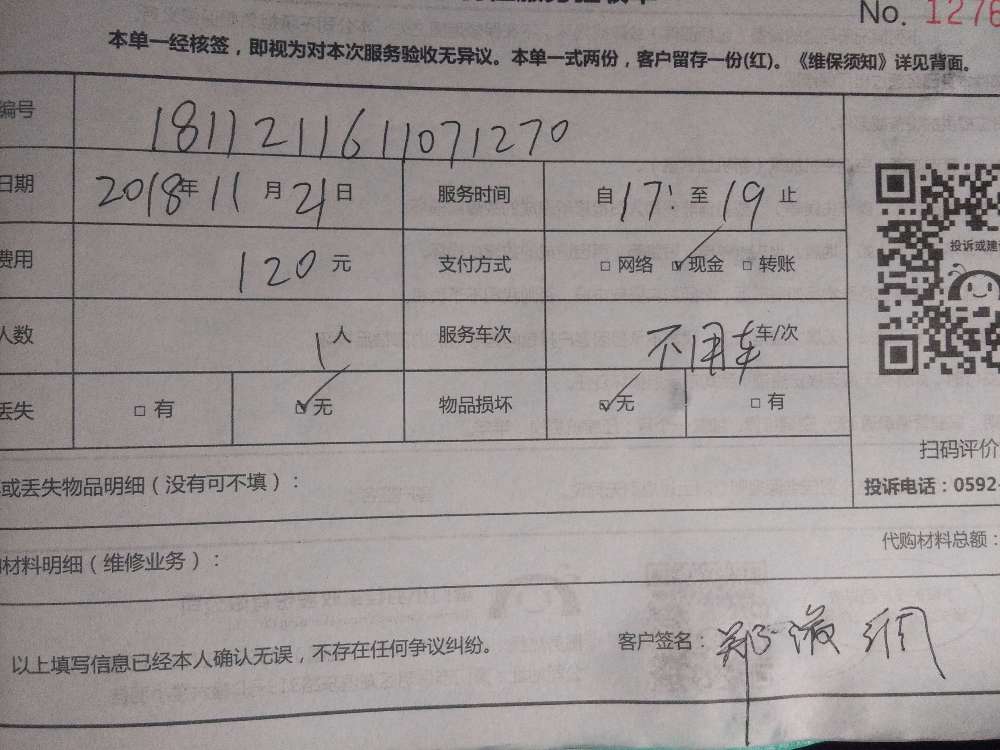 No. 1276
本单一经核签，即视为对本次服务验收无异议。本单一式两份，客户留存一份(红)。《维保须知》详见背面。
编号 1811211611071270
日期 2018年11月21日 服务时间 自17至19止
费用 120元 支付方式 □网络 ☑现金 □转账
投诉或建
人数 1人 服务车次 不用车 车/次
丢失 □有 ☑无 物品损坏 ☑无 □有
扫码评价
或丢失物品明细（没有可不填）：
投诉电话：0592-
材料明细（维修业务）：
代购材料总额：
以上填写信息已经本人确认无误，不存在任何争议纠纷。
客户签名：郑